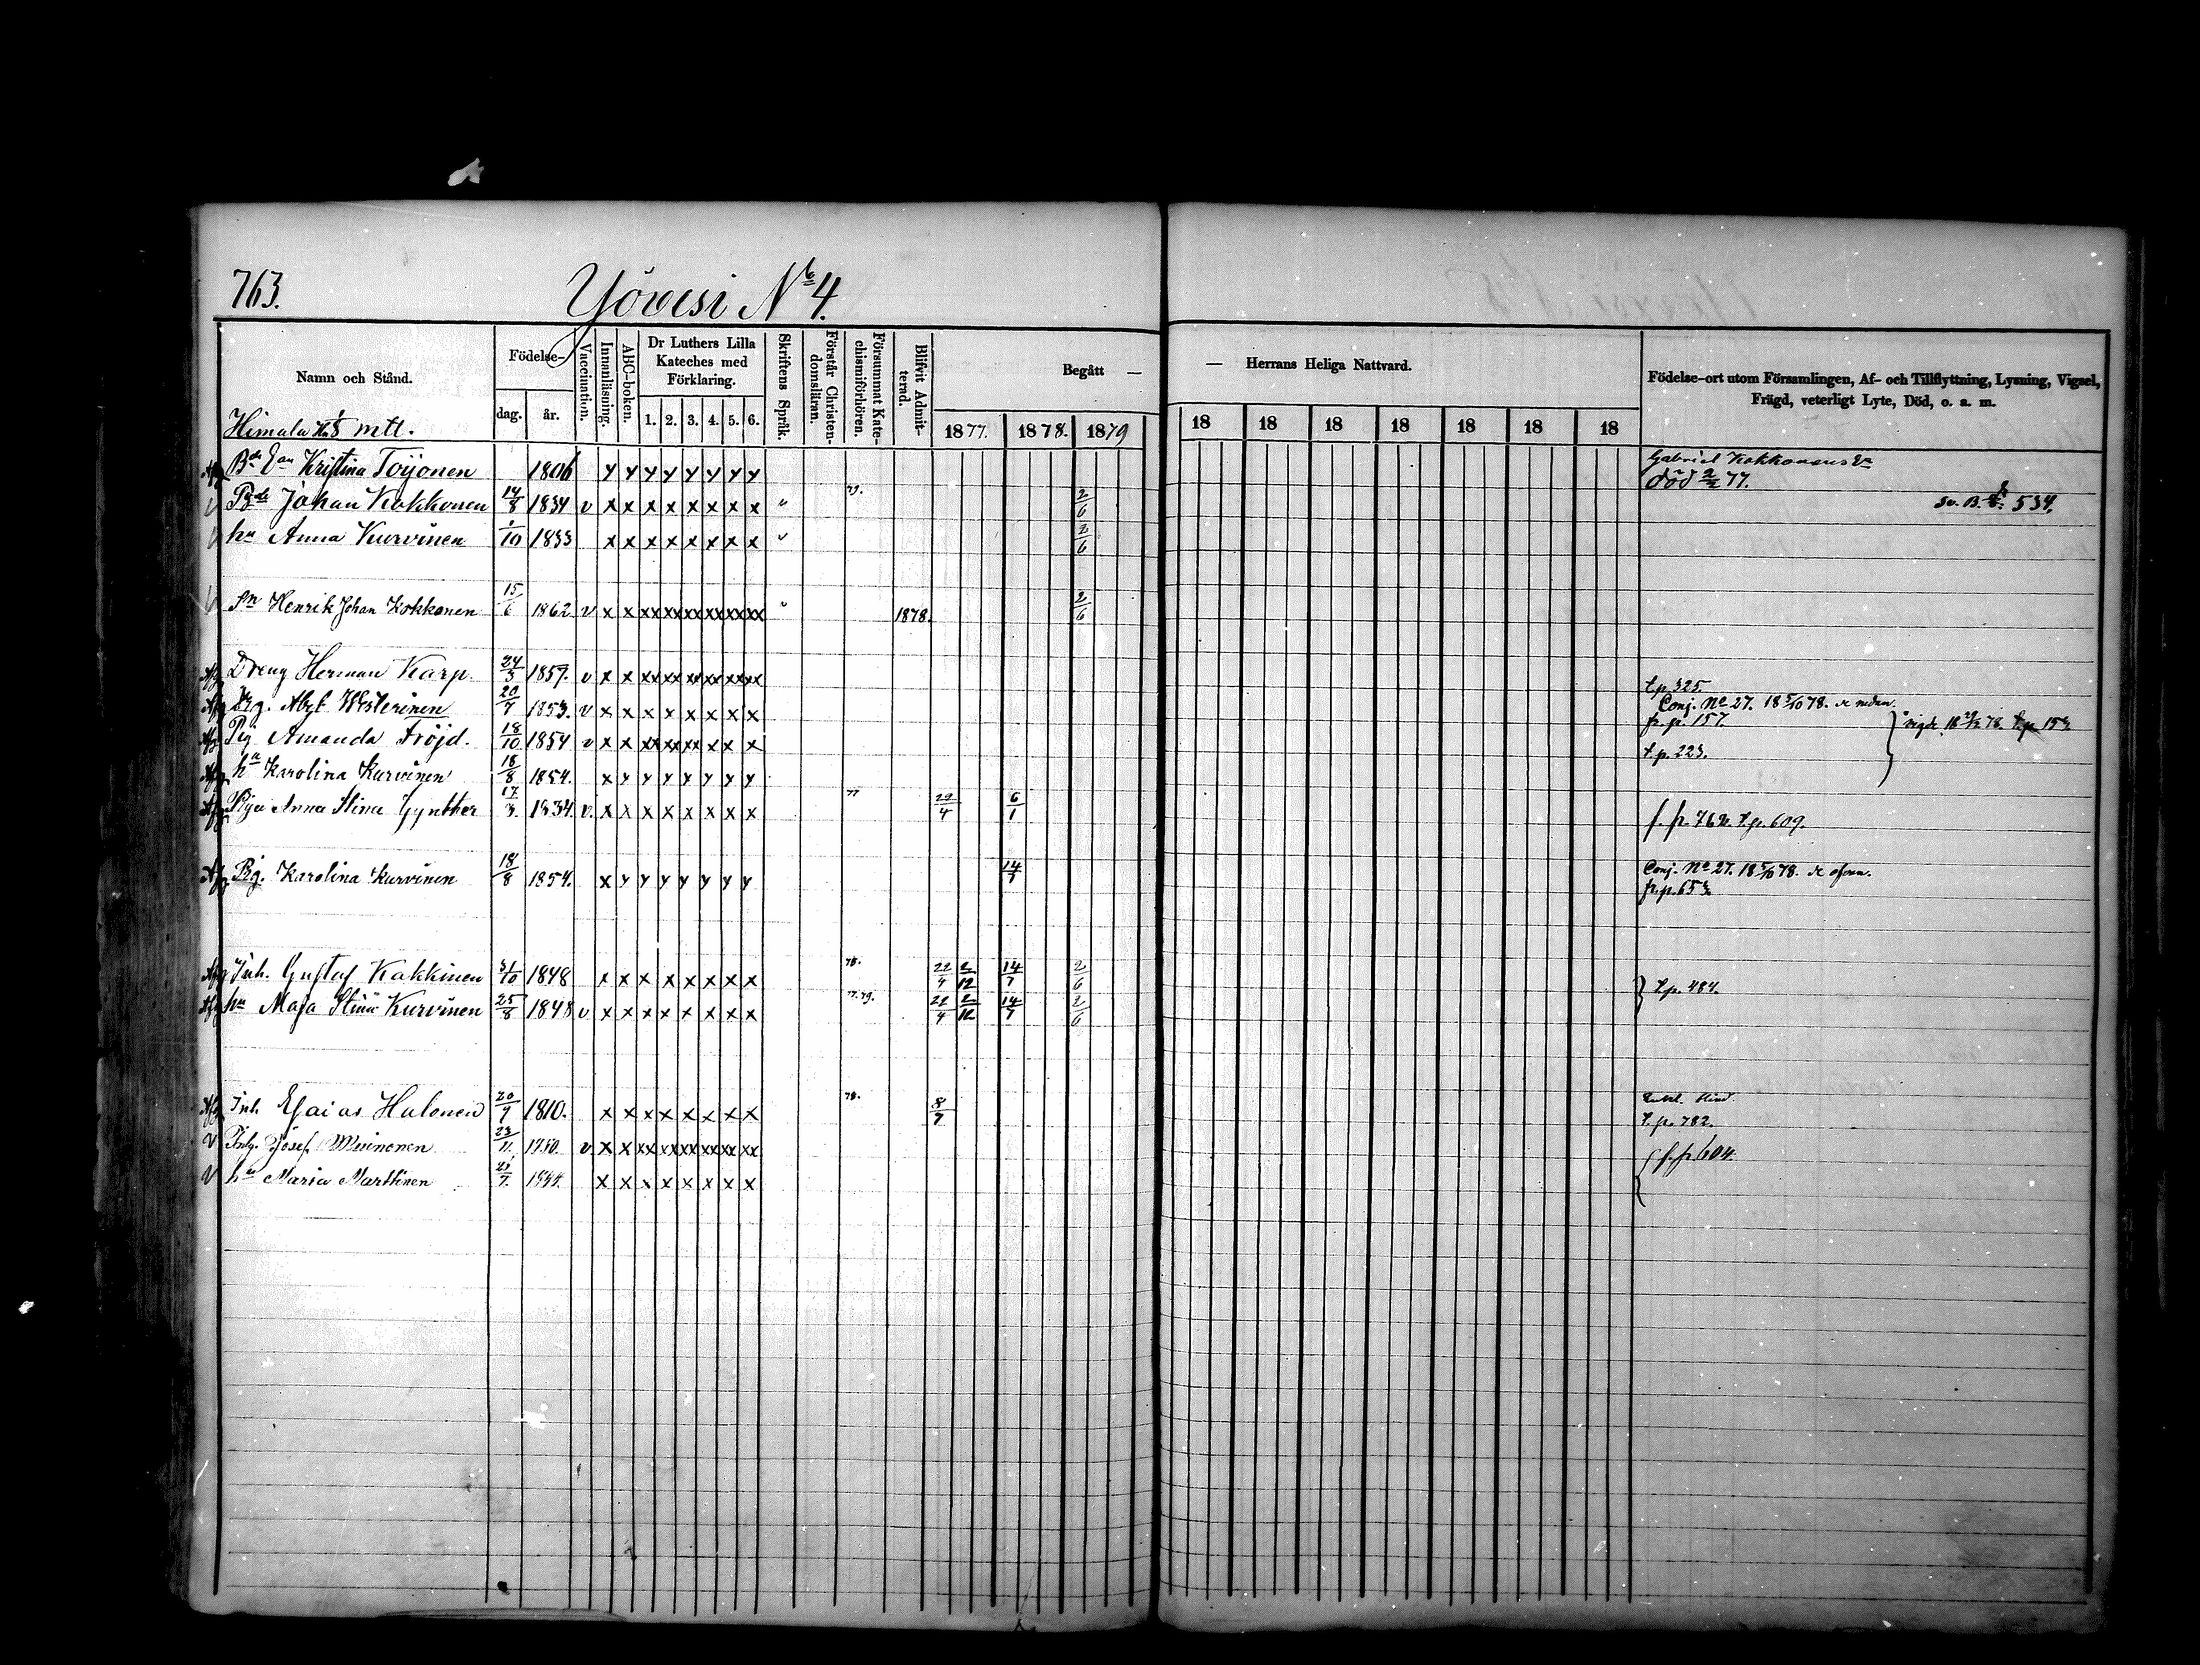 763. Yövesi No 4.
Namn och Stånd. Födelse- dag. år. Vaccination. Innanläsning. ABC-boken. Dr Luthers Lilla Kateches med Förklaring. 1. 2. 3. 4. 5. 6. Skriftens Språk. Förstår Christendomsläran. Försummat Katechismiförhören. Blifvit Admitterad. Begått — 1877. 1878. 1879
— Herrans Heliga Nattvard. 18 18 18 18 18 18 18
Födelse-ort utom Församlingen, Af- och Tillflyttning, Lysning, Vigsel, Frägd, veterligt Lyte, Död, o. a. m.
Himala mtl.
Kristina Toijonen 1806 y y y y y y y y Gabriel
död 77.
Johan Kokkonen 14/8 1834 v x x x x x x x x 79. 2/6 534.
hu Anna Kurvinen /10 1833 x x x x x x x x 2/6
Sn Henrik Johan Kokkonen 15/6 1862 v x x xx xx xx xx xx xx 1878. 2/6
Dreng Herman Karp. 24/3 1857. v x x xx xx xx xx xx xx t.p. 325.
Conj. No 27. 18 5/10 78.
20/7 1853. v x x x x x x x x fr. p. 157.
Pig Amanda Fröjd. 18/10 1854 v x x xx xx xx x x x t.p. 223.
hu Karolina Kurvinen 18/8 1854. x y y y y y y y
Anna Stina Gynther 17/3. 1834. v. x x x x x x x x 77 22/4 6/1 f. p. 762. t.p. 609.
Pig. Karolina Kurvinen 18/8 1854. x y y y y y y y 14/7 Conj. No 27. 18 5/10 78.
fr. p. 653.
Inh. Gustaf Kakkinen 31/10 1848 x x x x x x x x 78. 22/4 2/12 14/7 2/6 t.p. 484.
hu Maja Stina Kurvinen 25/8 1848 v x x x x x x x x 77. 79. 22/4 2/12 14/7 2/6
Inh. Esaias Halonen 20/7 1810. x x x x x x x x 78. 8/7
t.p. 782.
Josef Muinonen 23/11. v x x xx xx xx xx xx xx f. p. 604.
hu Maria Marttinen x x x x x x x x